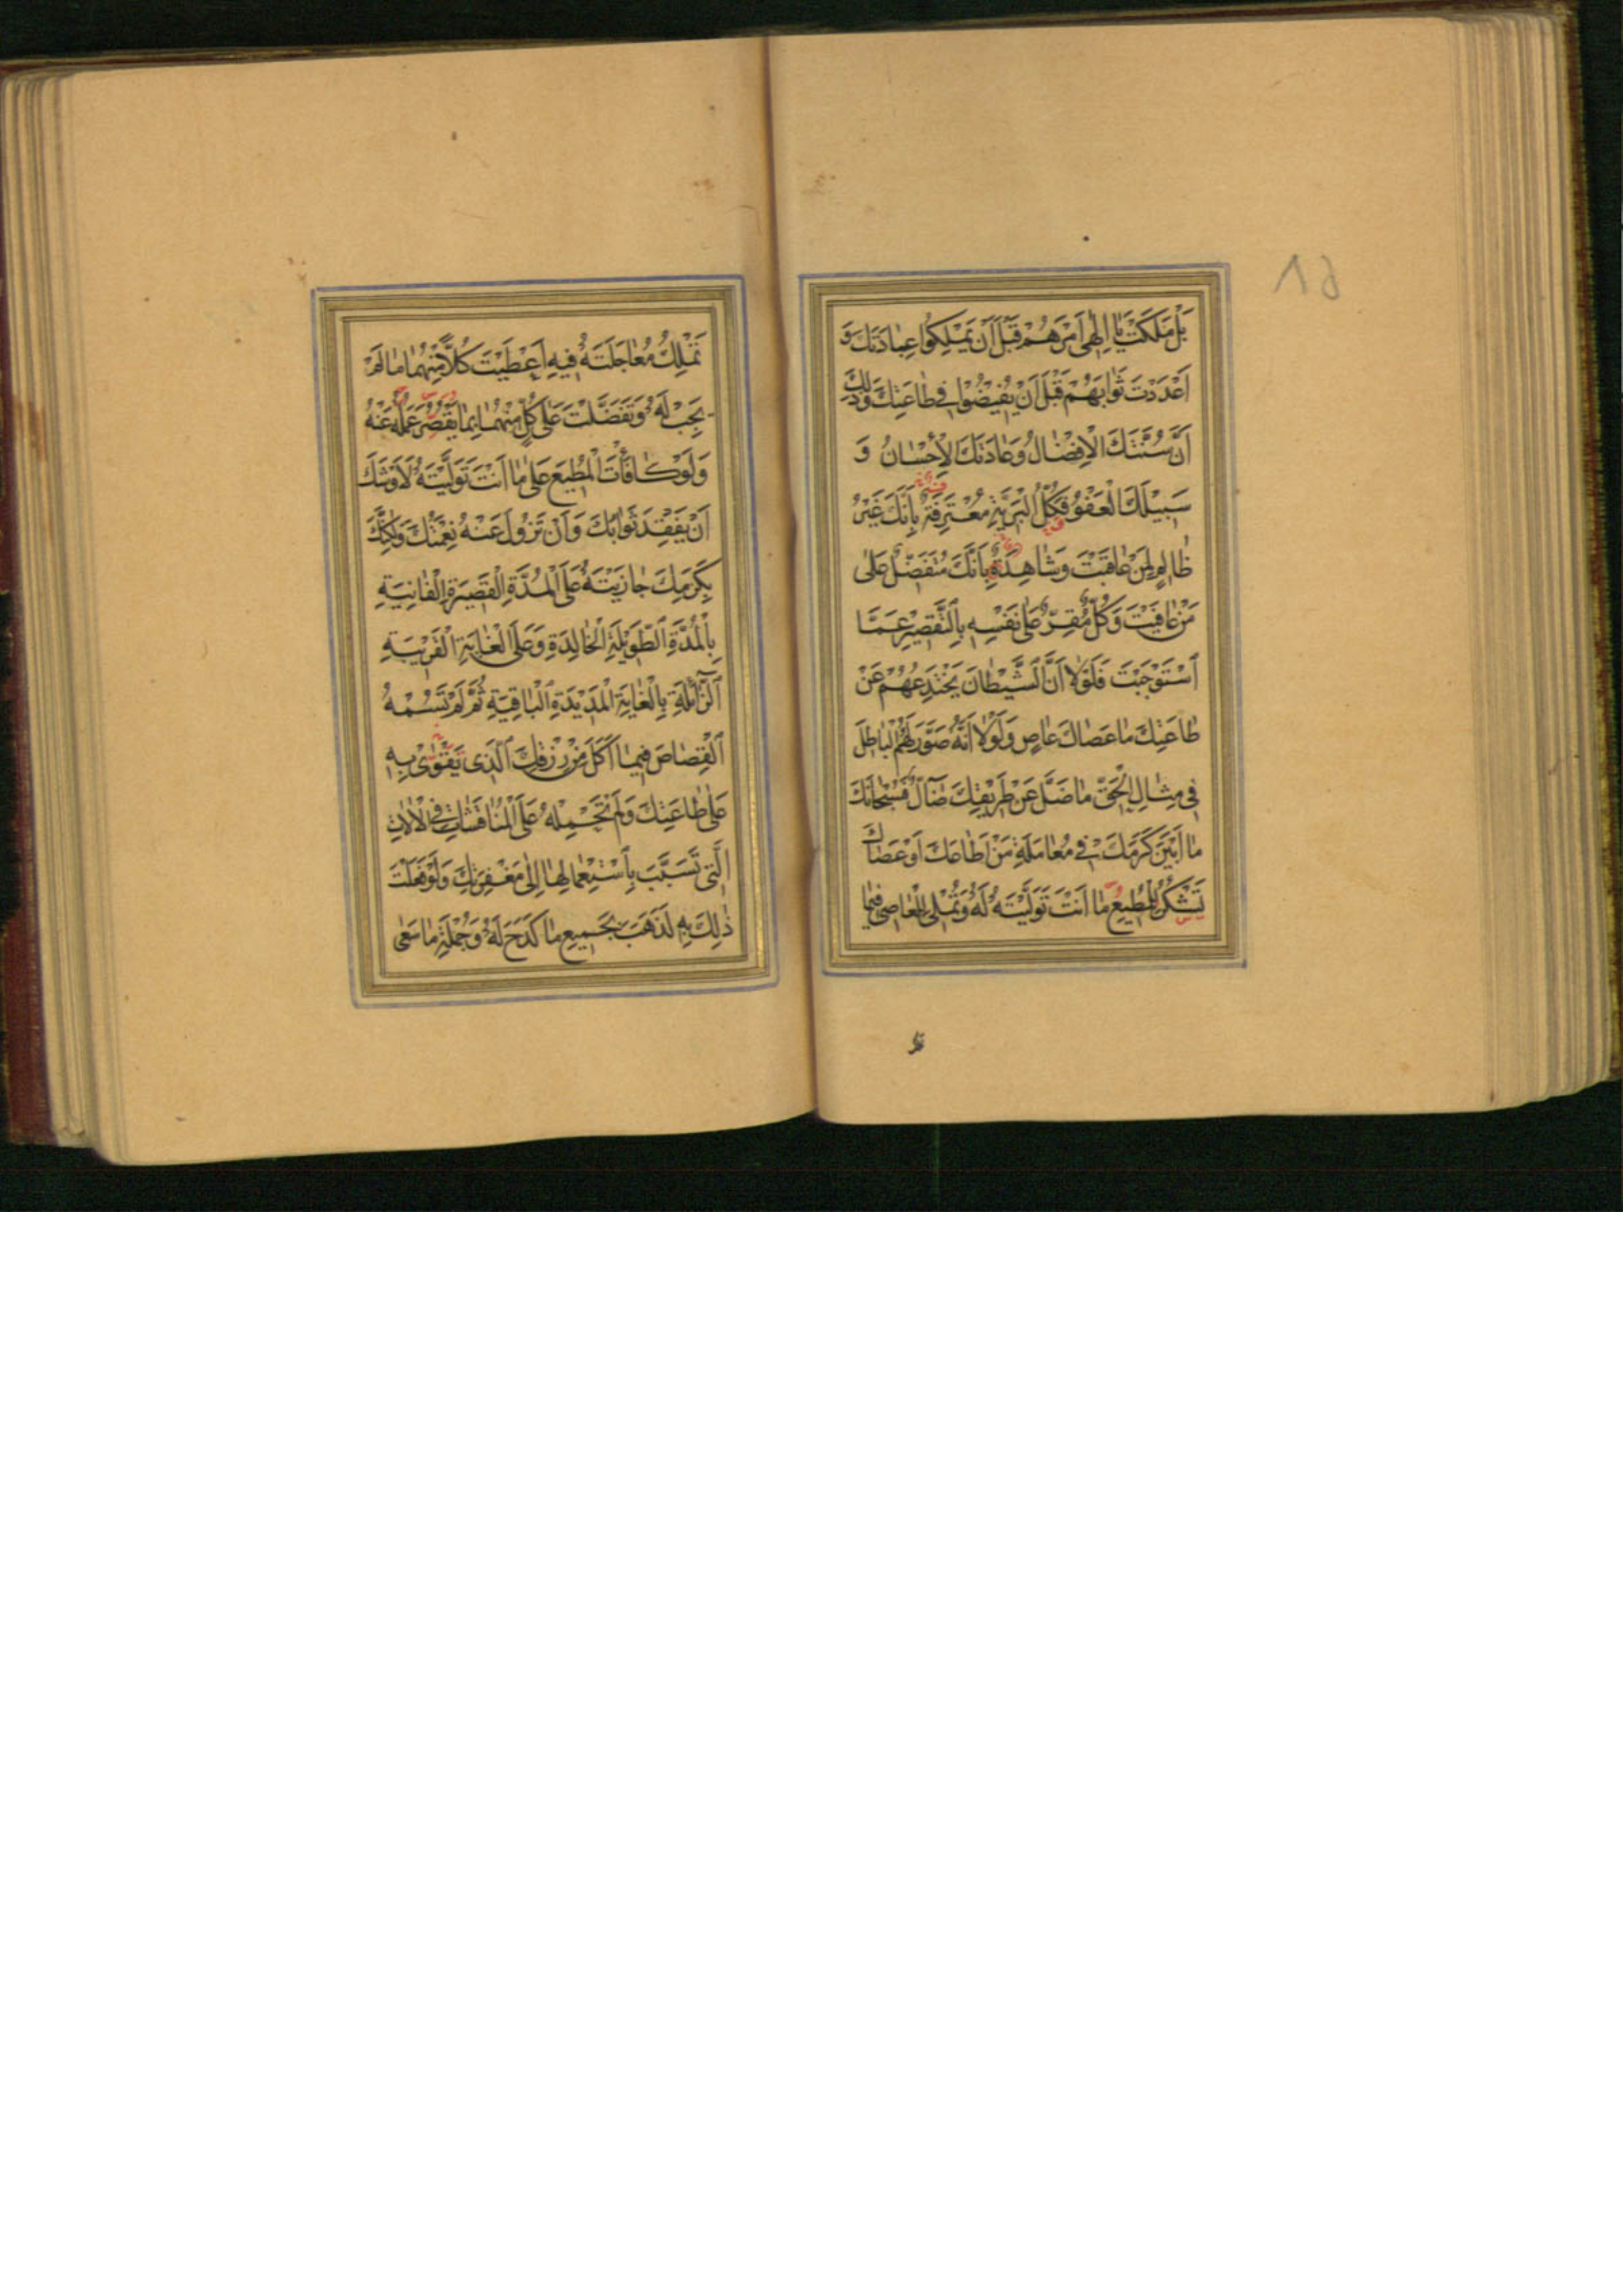 بَلْ مَلَكْتَ يَا اِلٰهى اَمْرَهُمْ قَبْلَ اَنْ يَمْلِكُوا عِبَادَتَكَ وَ
اَعْدَدْتَ ثَوَابَهُمْ قَبْلَ اَنْ يُفيضُوا فى طَاعَتِكَ وَذٰلِكَ
اَنَّ سُنَّتَكَ الْاِفْضَالُ وَعَادَتَكَ الْاِحْسَانُ وَ
سَبيلَكَ الْعَفْوُ فَكُلُّ الْبَرِيَّةِ مُعْتَرِفَةٌ بِاَنَّكَ غَيْرُ
ظَالِمٍ لِمَنْ عَاقَبْتَ وَشَاهِدَةٌ بِاَنَّكَ مُتَفَضِّلٌ عَلٰى
مَنْ عَافَيْتَ وَكُلٌّ مُقِرٌّ عَلٰى نَفْسِهِ بِالتَّقْصيرِ عَمَّا
اسْتَوْجَبْتَ فَلَوْلَا اَنَّ الشَّيْطَانَ يَخْتَدِعُهُمْ عَنْ
طَاعَتِكَ مَا عَصَاكَ عَاصٍ وَلَوْلَا اَنَّهُ صَوَّرَ لَهُمُ الْبَاطِلَ
فى مِثَالِ الْحَقِّ مَا ضَلَّ عَنْ طَريقِكَ ضَآلٌّ فَسُبْحَانَكَ
مَا اَبْيَنَ كَرَمَكَ فى مُعَامَلَةِ مَنْ اَطَاعَكَ اَوْ عَصَاكَ
تَشْكُرُ الْمُطيعَ مَا اَنْتَ تَوَلَّيْتَهُ لَهُ وَتُمْلى لِلْعَاصى فيمَا
تَمْلِكُ مُعَاجَلَتَهُ فيهِ اَعْطَيْتَ كُلًّا مِنْهُمَا مَا لَمْ
يَجِبْ لَهُ وَتَفَضَّلْتَ عَلٰى كُلٍّ مِنْهُمَا بِمَا يَقْصُرُ عَمَلُهُ عَنْهُ
وَلَوْ كَافَأْتَ الْمُطيعَ عَلٰى مَا اَنْتَ تَوَلَّيْتَهُ لَاَوْشَكَ
اَنْ يَفْقِدَ ثَوَابَكَ وَاَنْ تَزُولَ عَنْهُ نِعْمَتُكَ وَلٰكِنَّكَ
بِكَرَمِكَ جَازَيْتَهُ عَلَى الْمُدَّةِ الْقَصيرَةِ الْفَانِيَةِ
بِالْمُدَّةِ الطَّويلَةِ الْخَالِدَةِ وَعَلَى الْغَايَةِ الْقَريبَةِ
الزَّآئِلَةِ بِالْغَايَةِ الْمَديدَةِ الْبَاقِيَةِ ثُمَّ لَمْ تَسُمْهُ
الْقِصَاصَ فيمَا اَكَلَ مِنْ رِزْقِكَ الَّذى يَقْوٰى بِهِ
عَلٰى طَاعَتِكَ وَلَمْ تَحْمِلْهُ عَلَى الْمُنَاقَشَاتِ فى الْاٰلَاتِ
الَّتى تَسَبَّبَ بِاسْتِعْمَالِهَا اِلٰى مَغْفِرَتِكَ وَلَوْ فَعَلْتَ
ذٰلِكَ بِهِ لَذَهَبَ بِجَميعِ مَا كَدَحَ لَهُ وَجُمْلَةِ مَا سَعٰى